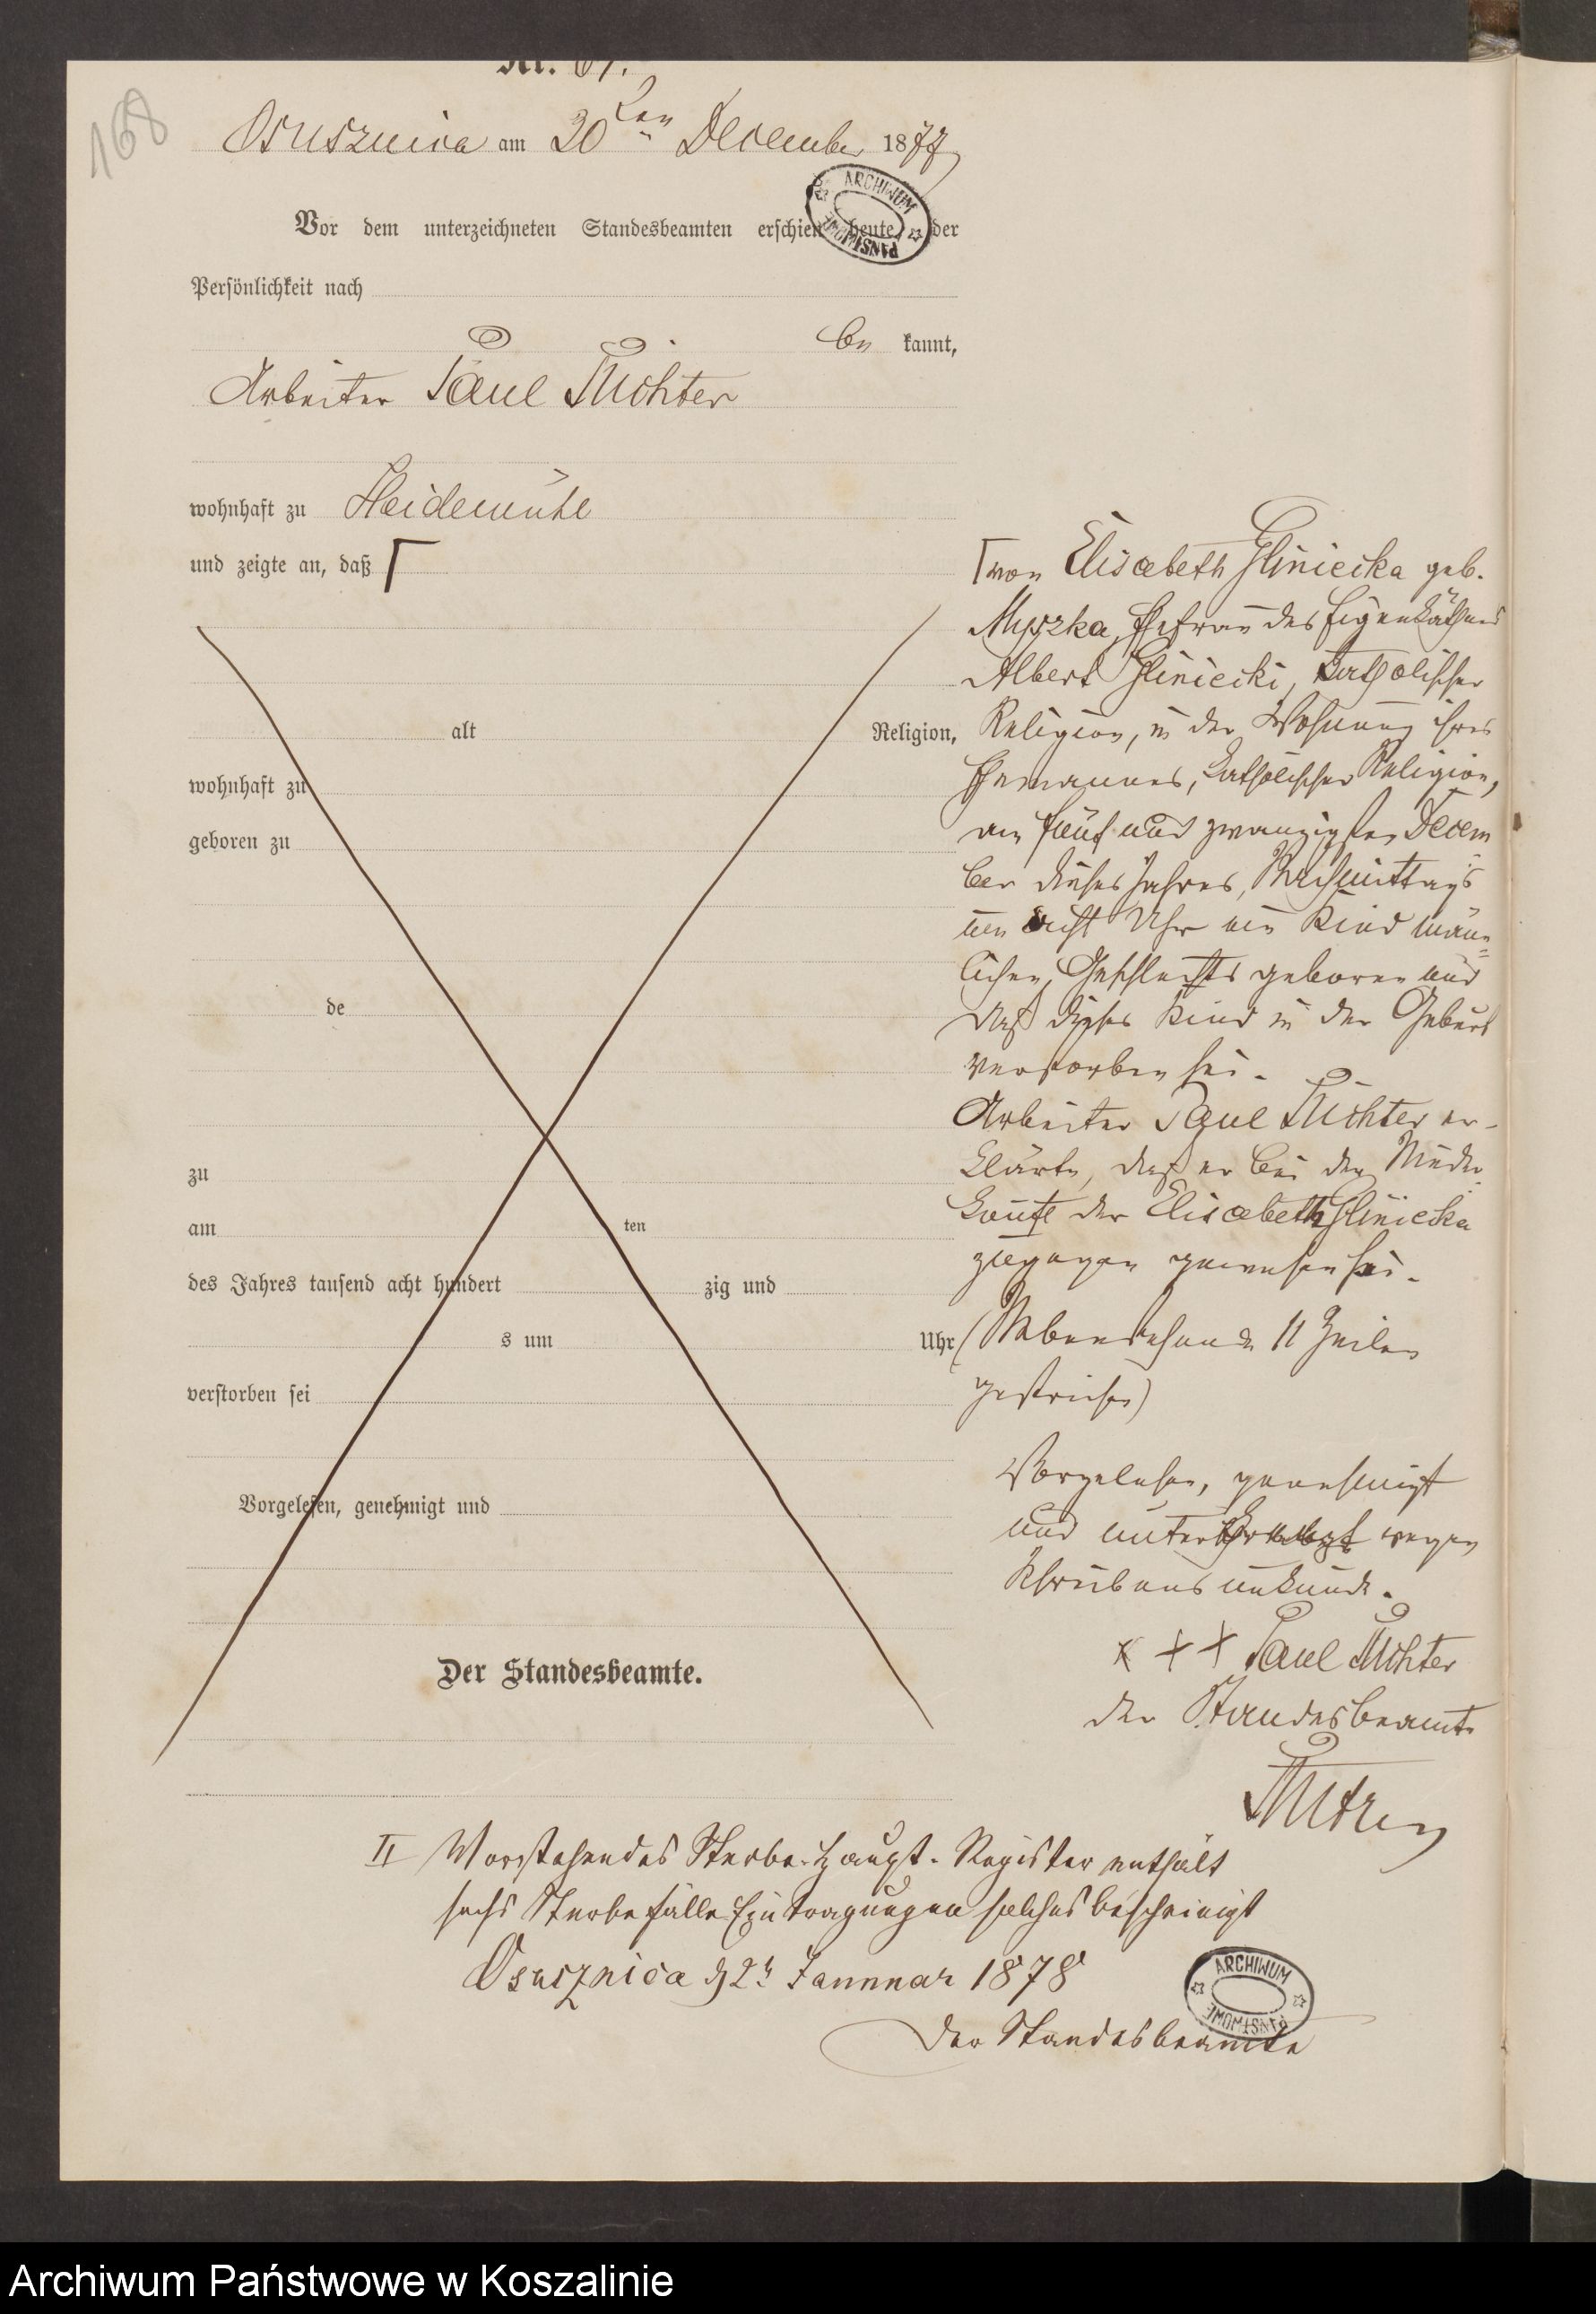 168
Nr. 67.
Osusznica am 30ten December 1877
Vor dem unterzeichneten Standesbeamten erschien heute, der
Persönlichkeit nach
be kannt,
Arbeiter Paul Richter
wohnhaft zu Heidemühl
und zeigte an, daß ┌
alt Religion,
wohnhaft zu
geboren zu
de
zu
am ten
des Jahres tausend acht hundert zig und
s um Uhr
verstorben sei
Vorgelesen, genehmigt und
Der Standesbeamte.
┌ von Elisabeth Gliniecka geb.
Myszka, Ehefrau des Eigenkäthners
Albert Gliniecki, katholischer
Religion, in der Wohnung ihres
Ehemannes, katholischer Religion,
am fünf und zwanzigsten Decem
ber dieses Jahres, Nachmittags
um acht Uhr ein Kind männ=
lichen Geschlechts geboren und
daß dieses Kind in der Geburt
verstorben sei.
Arbeiter Paul Richter er-
klärte, daß er bei der Nieder
kunft der Elisabeth Gliniecka
zugegen gewesen sei.
(Nebenstehende 11 Zeilen
gestrichen)
Vorgelesen, genehmigt
und unterkreuzt wegen
Schreibensunkunde.
x + + Paul Richter
der Standesbeamte
II Vorstehendes Sterbe-Haupt-Register enthält
sechs Sterbefälle Eintragungen solches bescheinigt
Osusznica d 2t Jannuar 1878
Der Standesbeamte
ARCHIWUM PAŃSTWOWE
ARCHIWUM PAŃSTWOWE
Archiwum Państwowe w Koszalinie